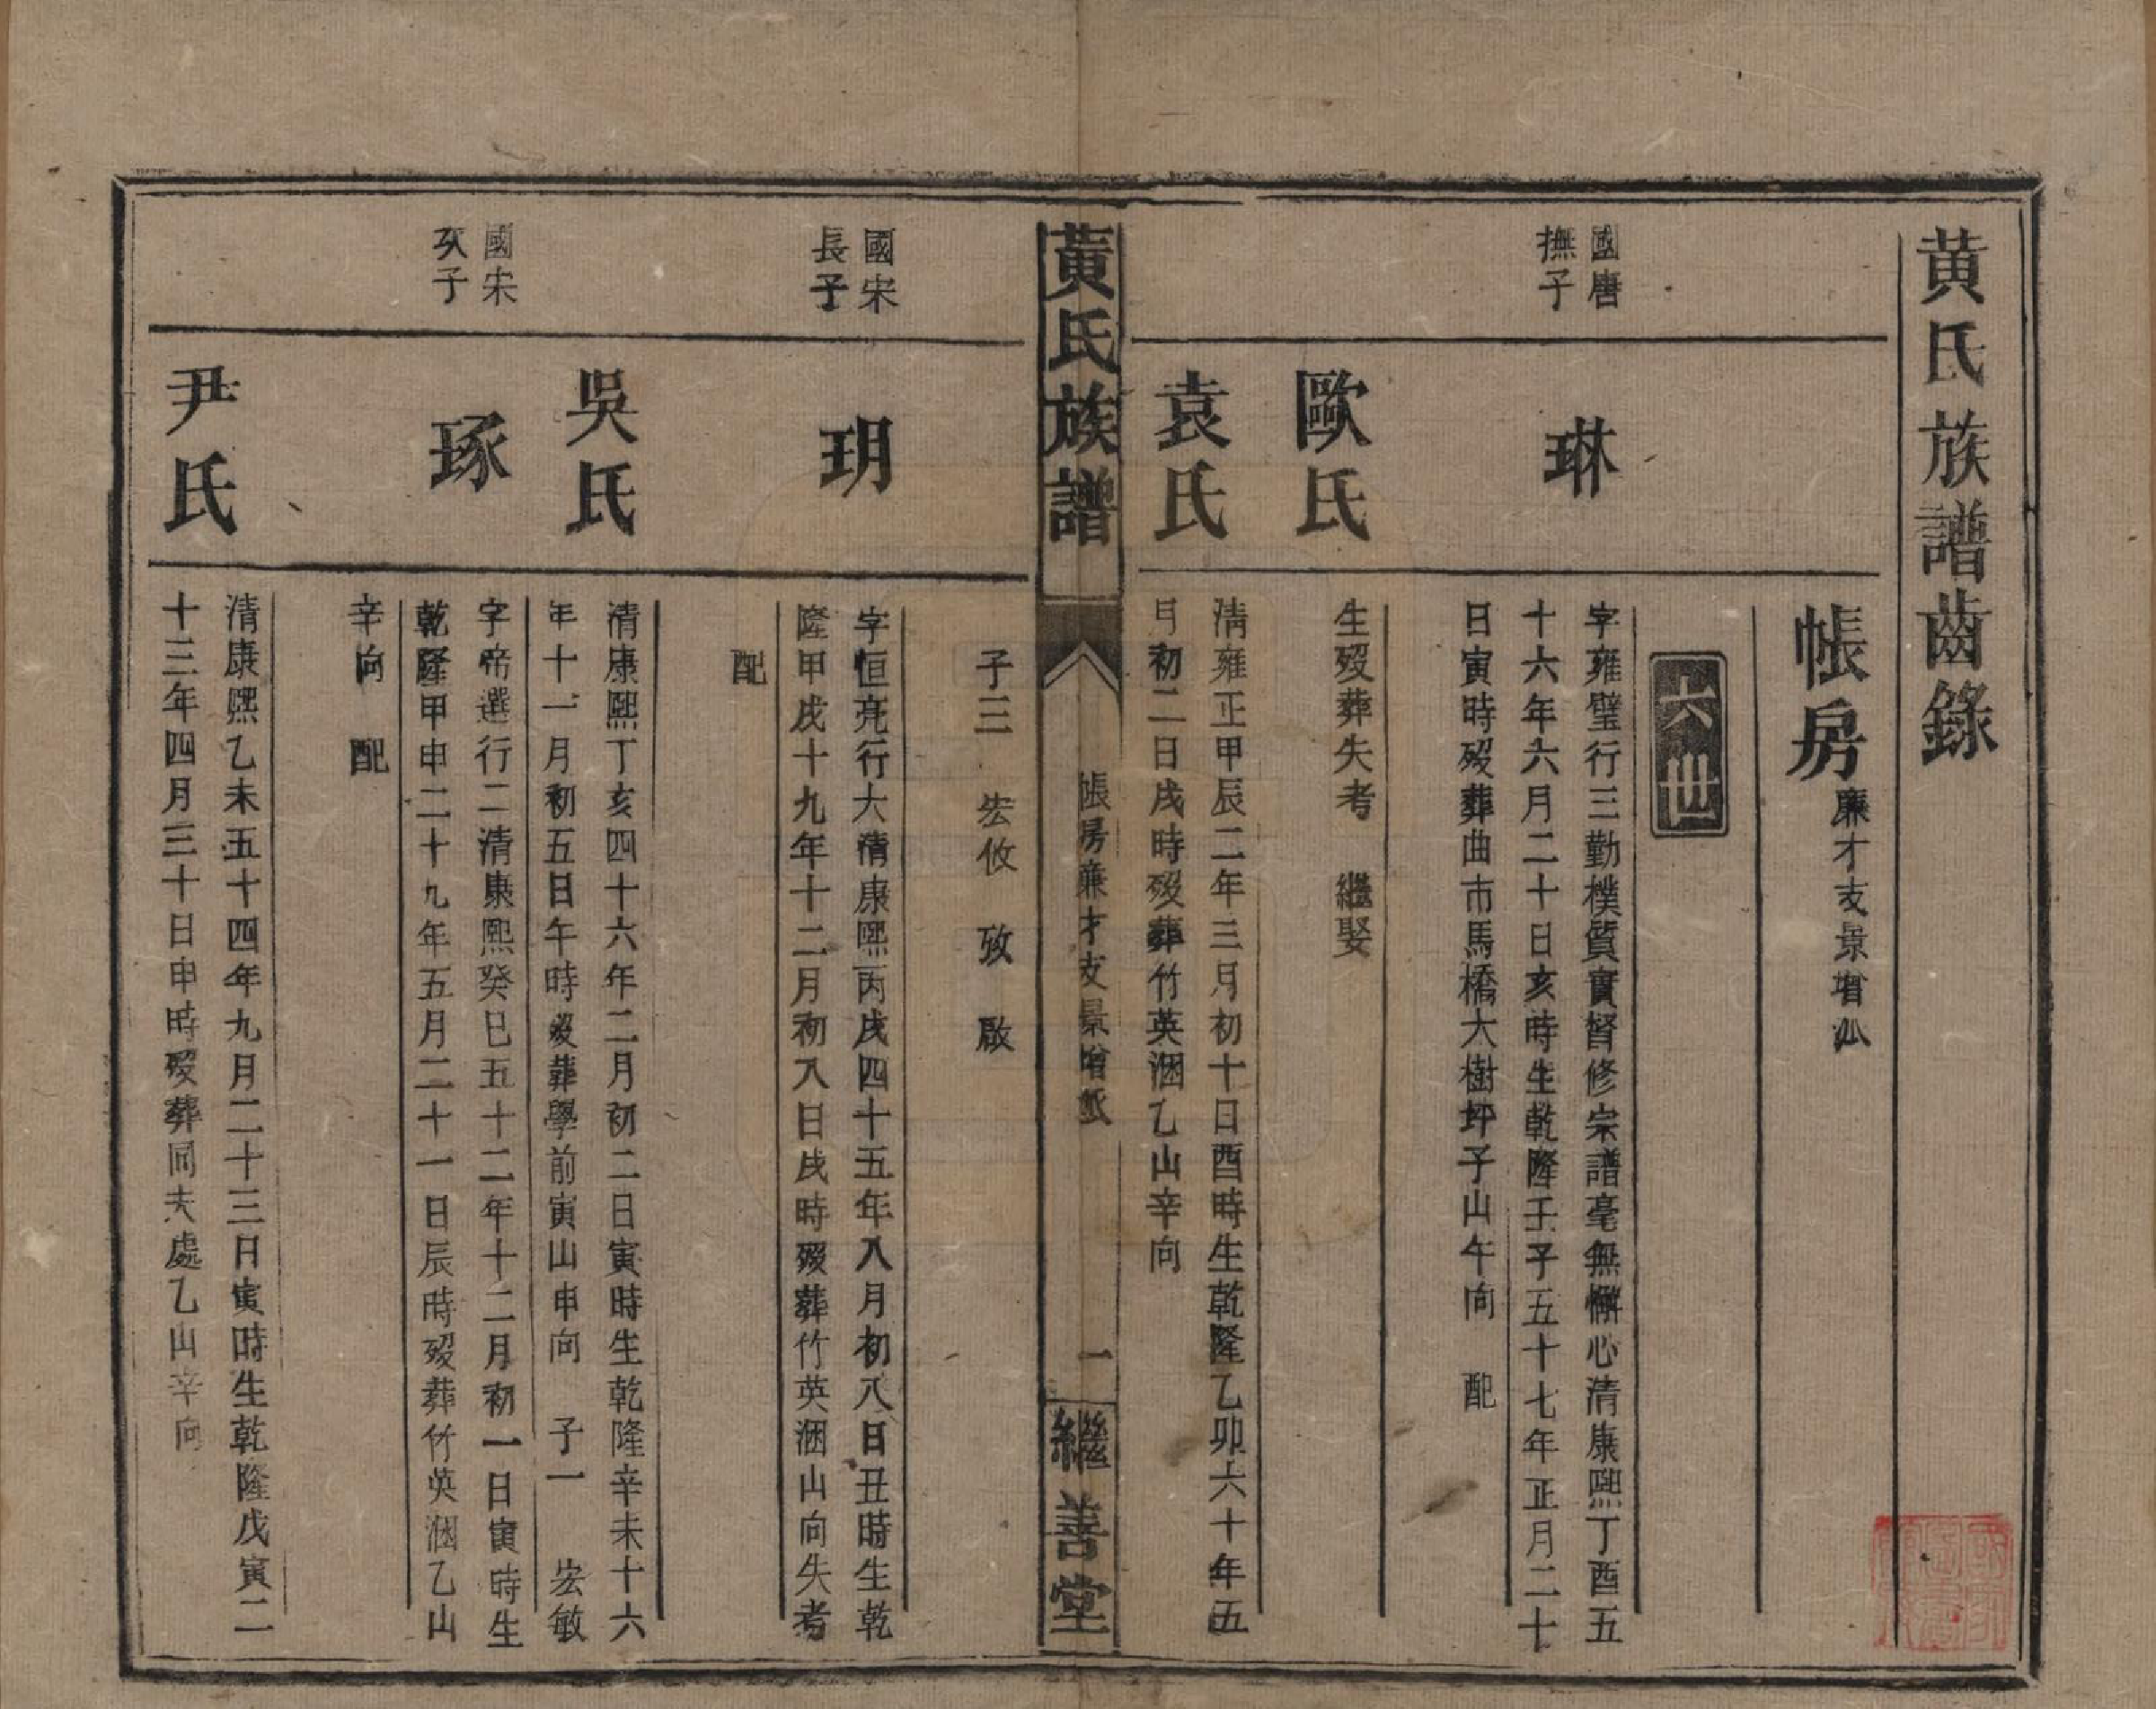 黄氏族譜齒錄
帳房廉才支景增瓜
六世
國唐
撫子
琳
字雍璧行三勤樸質實督修宗譜毫無懈心清康熙丁酉五
十六年六月二十日亥時生乾隆壬子五十七年正月二十
日寅時歿葬曲市馬橋大樹坪子山午向 配
歐氏
生歿葬失考 繼娶
袁氏
清雍正甲辰二年三月初十日酉時生乾隆乙卯六十年五
月初二日戌時歿葬竹英涃乙山辛向
黃氏族譜
帳房廉才支景增派
一
繼善堂
子三 宏攸 攷 啟
國宋
長子
玥
字恒亮行大清康熙丙戌四十五年八月初八日丑時生乾
隆甲戌十九年十二月初八日戌時歿葬竹英涃山向失考
配
吳氏
清康熙丁亥四十六年二月初二日寅時生乾隆辛未十六
年十一月初五日午時歿葬學前寅山申向 子一 宏敏
國宋
次子
琢
字帝選行二清康熙癸巳五十二年十二月初一日寅時生
乾隆甲申二十九年五月二十一日辰時歿葬竹英涃乙山
辛向 配
尹氏
清康熙乙未五十四年九月二十三日寅時生乾隆戊寅二
十三年四月三十日申時歿葬同夫處乙山辛向